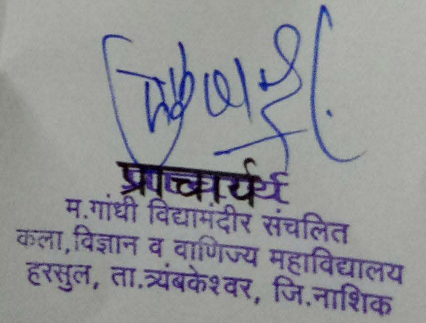 प्राचार्य
म.गांधी विद्यामंदीर संचलित
कला,विज्ञान व वाणिज्य महाविद्यालय
हरसुल, ता.त्र्यंबकेश्वर, जि.नाशिक